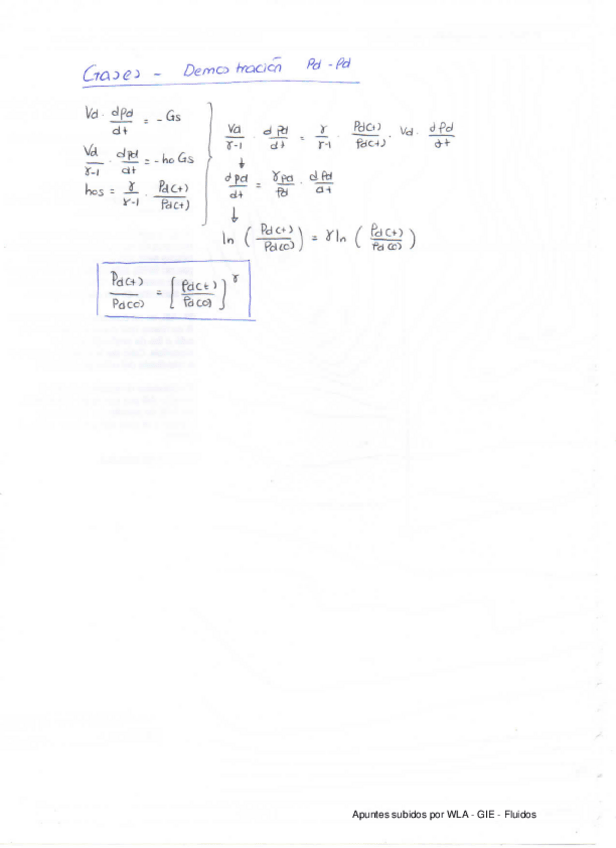 Gases - Demostración Pd - ρd
Vd · dρd/dt = -Gs
Vd/γ-1 · dpd/dt = -ho Gs
hos = γ/γ-1 · Pd(t)/ρd(t)
Vd/γ-1 · dpd/dt = γ/γ-1 · Pd(t)/ρd(t) · Vd · dρd/dt
↓
dpd/dt = γpd/ρd · dρd/dt
↓
ln (Pd(t)/Pd(0)) = γ ln (ρd(t)/ρd(0))
Pd(t)/Pd(0) = [ρd(t)/ρd(0)]^γ
Apuntes subidos por WLA - GIE - Fluidos